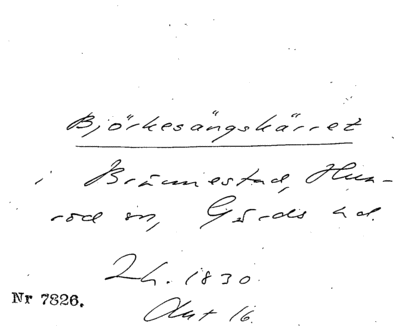 Björkesängskärret
i Brännestad, Hun-
röd sn, Gärds hd.
Lh. 1830.
Nr 7826.
Akt 16.